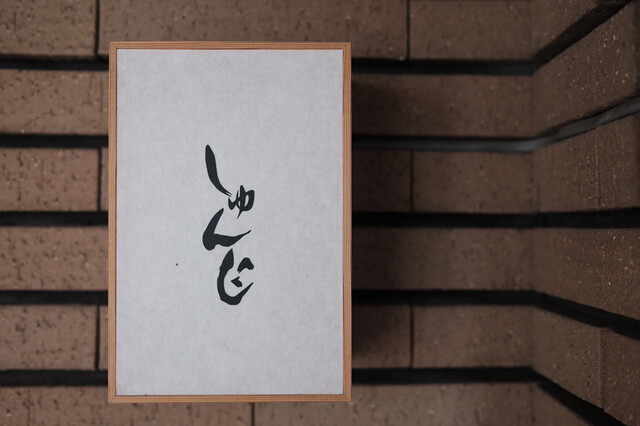 しゅんじ